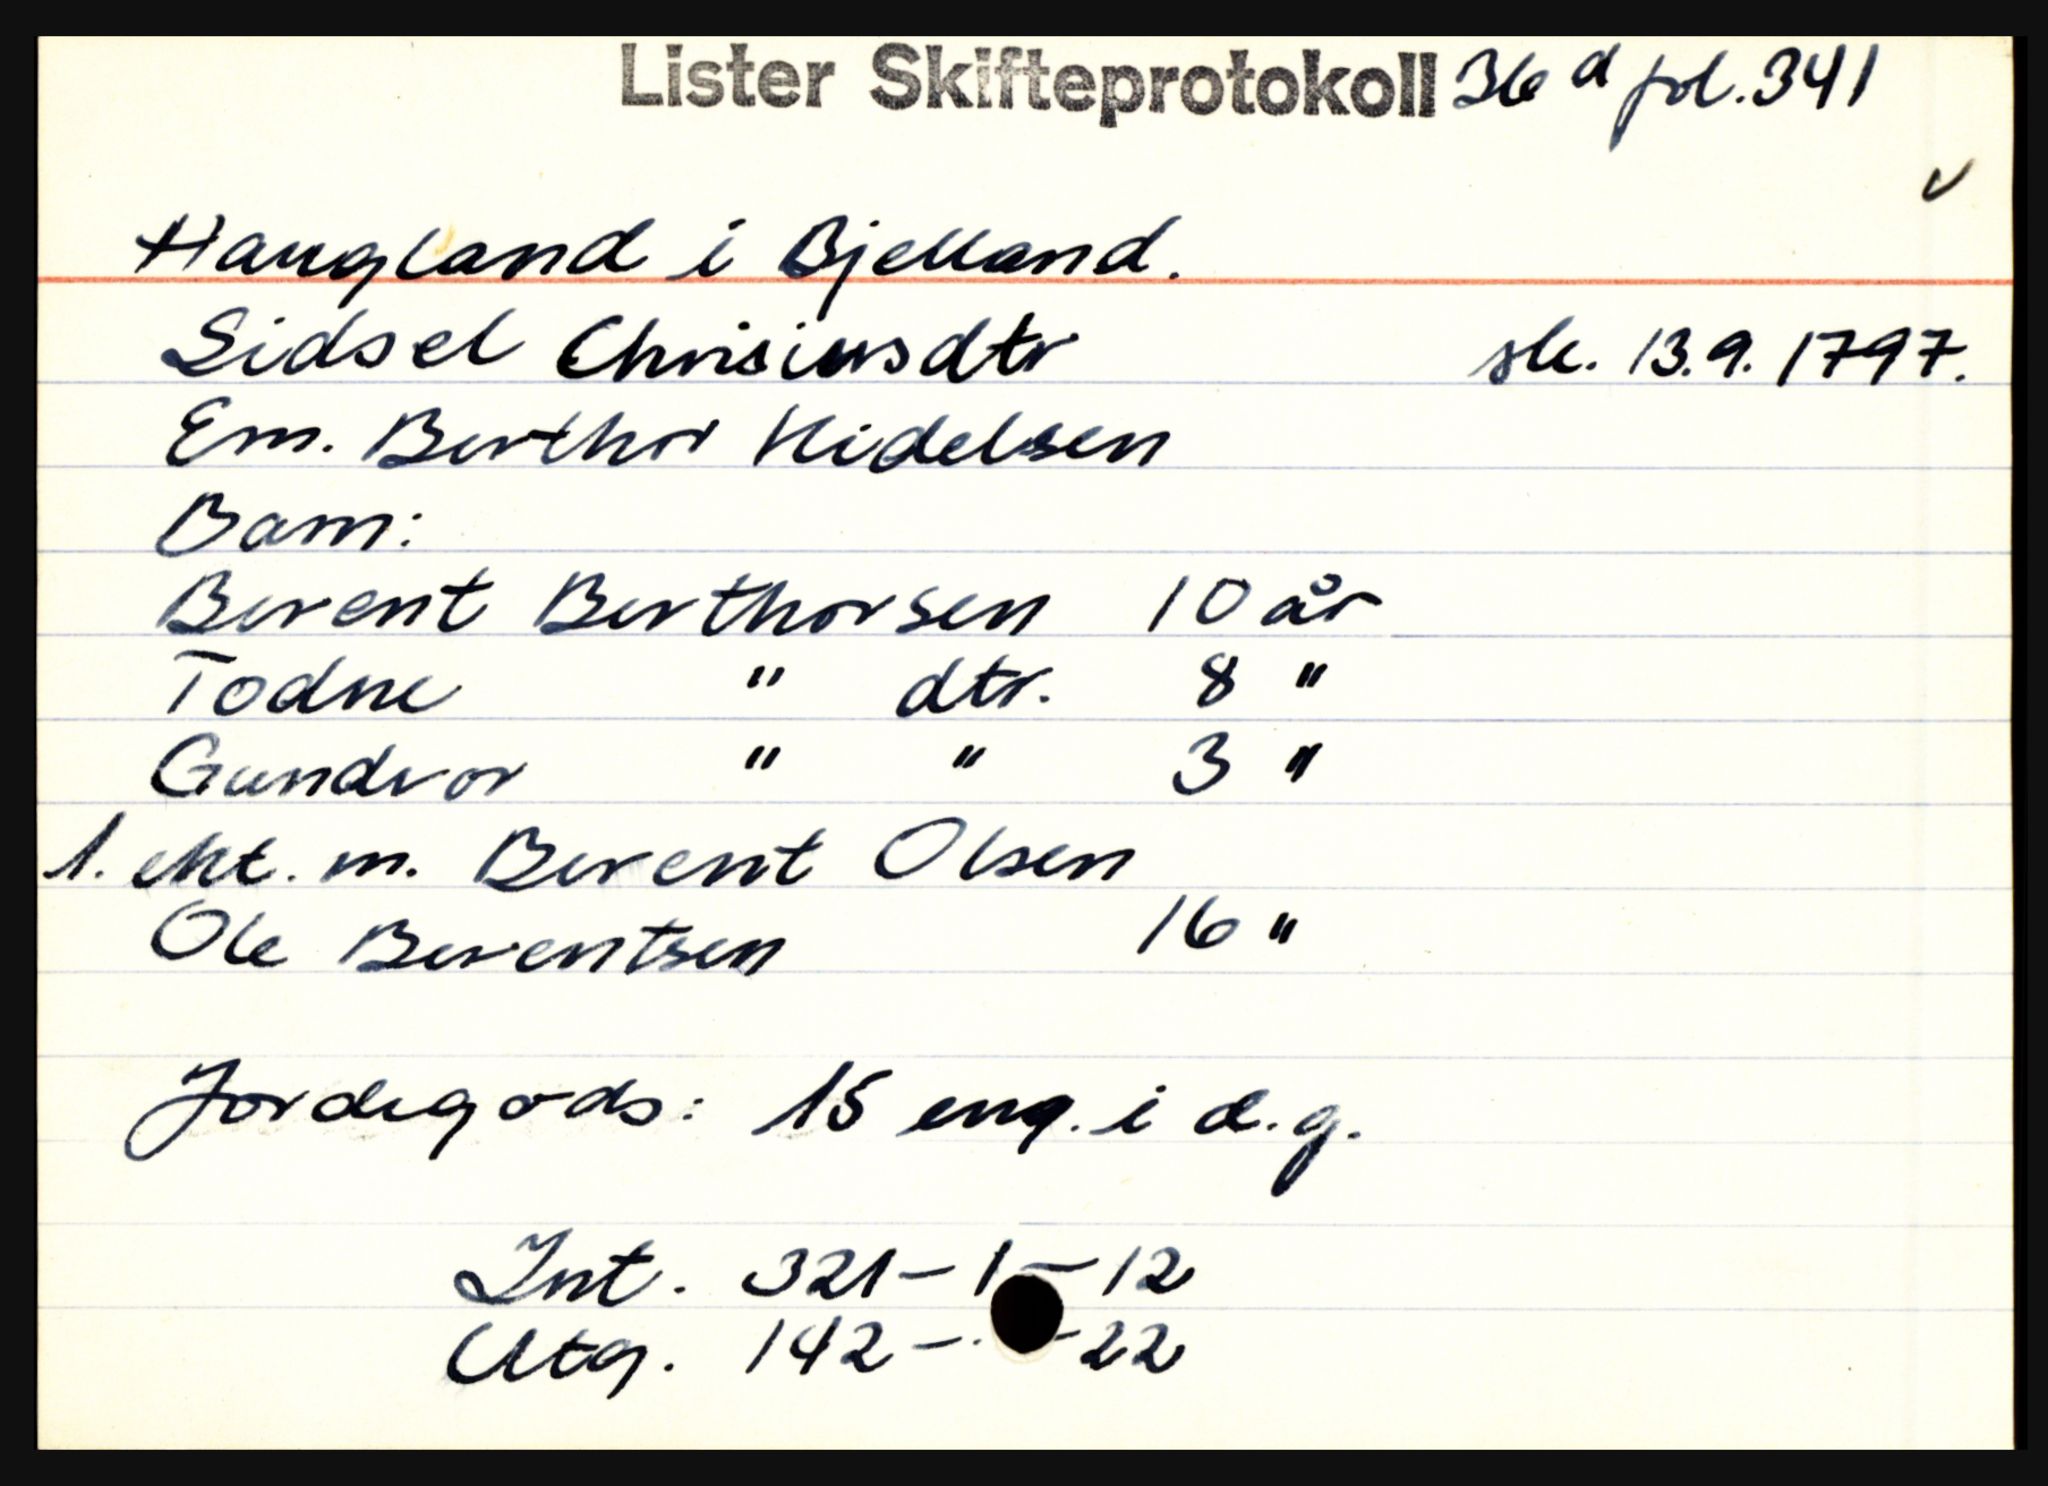 Lister Skifteprotokoll 36 d fol. 341
Haugland i Bjelland.
Sidsel sk. 13.9.1797.
Em. Berthor Kidelsen
Barn:
Berent Berthorsen 10 år
Todne " dtr. 8 "
Gundvor " " 3 "
1. ekt. m. Berent Olsen
Ole Berentsen 16 "
Jordegods: 15 eng. i d.g.
Int. 321 - 1 - 12
Utg. 142 - - 22